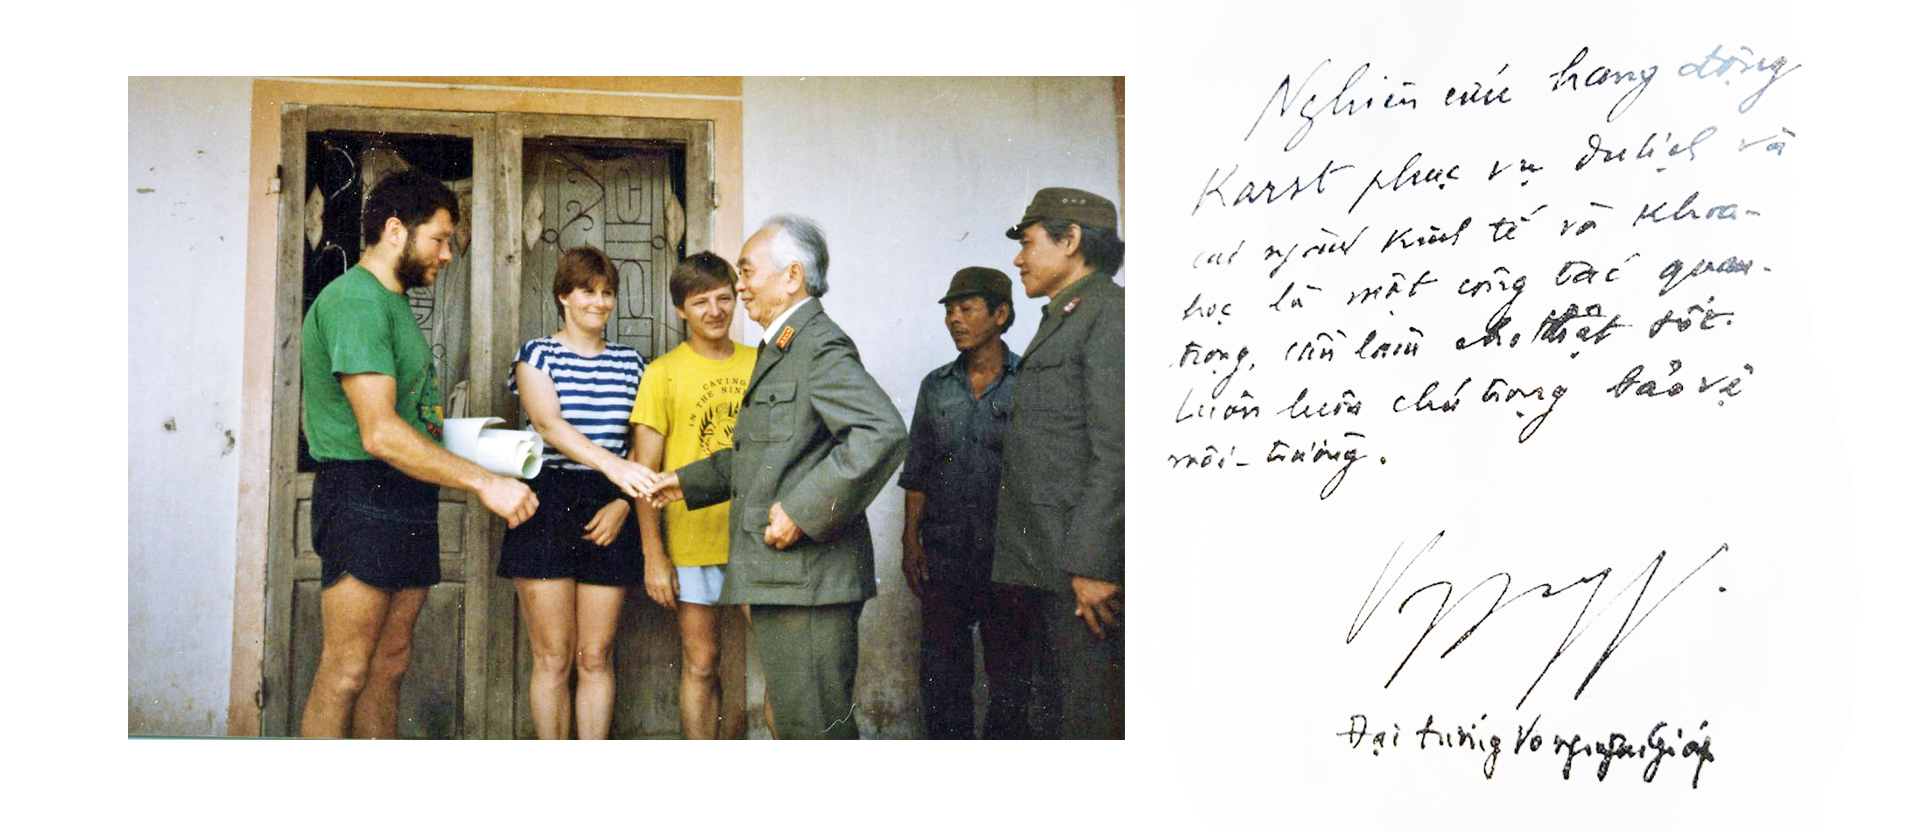 CAVING
IN THE NINE
Nghiên cứu hang động
Karst phục vụ du lịch và
các ngành kinh tế và khoa-
học là một công tác quan-
trọng, cần làm cho thật tốt.
Luôn luôn chú trọng bảo vệ
môi-trường.
Đại tướng Võ nguyên Giáp